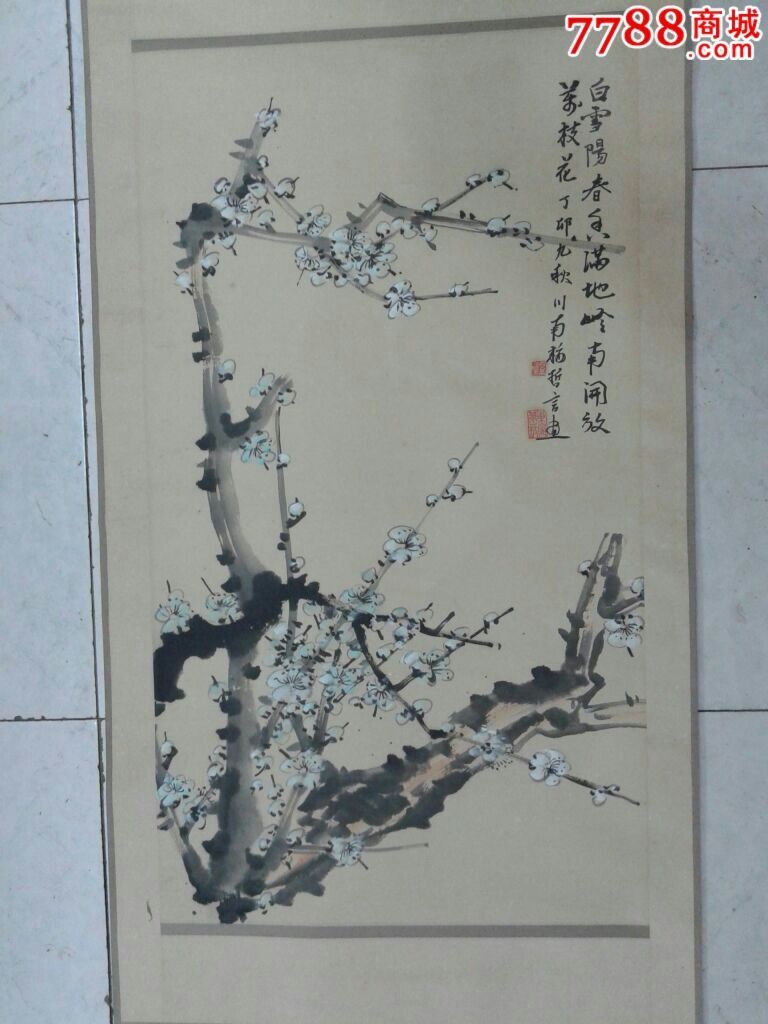 7788商城
.com
白雪陽春香滿地嶺南開放
萬枝花 丁卯九秋川南楊哲言画